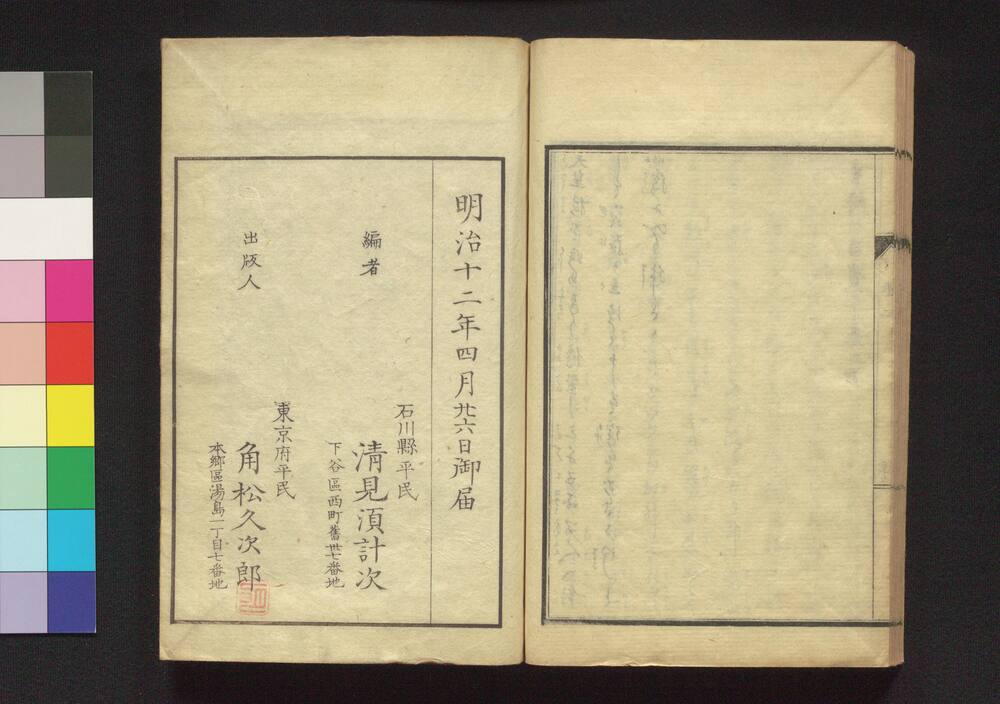 明治十二年四月廿六日御届
編者
石川縣平民
清見須計次
下谷區西町舊丗七番地
出版人
東京府平民
角松久次郎
本郷區湯島一丁目七番地